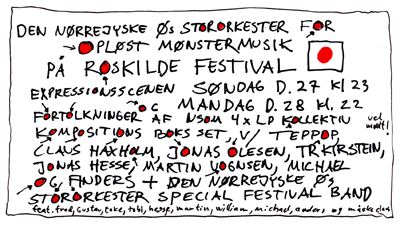 DEN NØRREJYSKE ØS STORORKESTER FOR
OPLØST MØNSTERMUSIK
PÅ ROSKILDE FESTIVAL
EXPRESSIONSSCENEN SØNDAG D. 27 Kl 23
OG MANDAG D. 28 Kl. 22
FORTOLKNINGER AF NSOM 4 x LP KOLLEKTIV
vel mødt!
KOMPOSITIONS BOKS SET, V/ TEPPOP,
CLAUS HAXHOLM, JONAS OLESEN, TR KIRSTEIN,
JONAS HESSE, MARTIN VOGNSEN, MICHAEL
OG FINDERS + DEN NØRREJYSKE ØS
STORORKESTER SPECIAL FESTIVAL BAND
feat. fred, gustav, toke, tobi, hesse, martin, william, michael, anders og måske claus